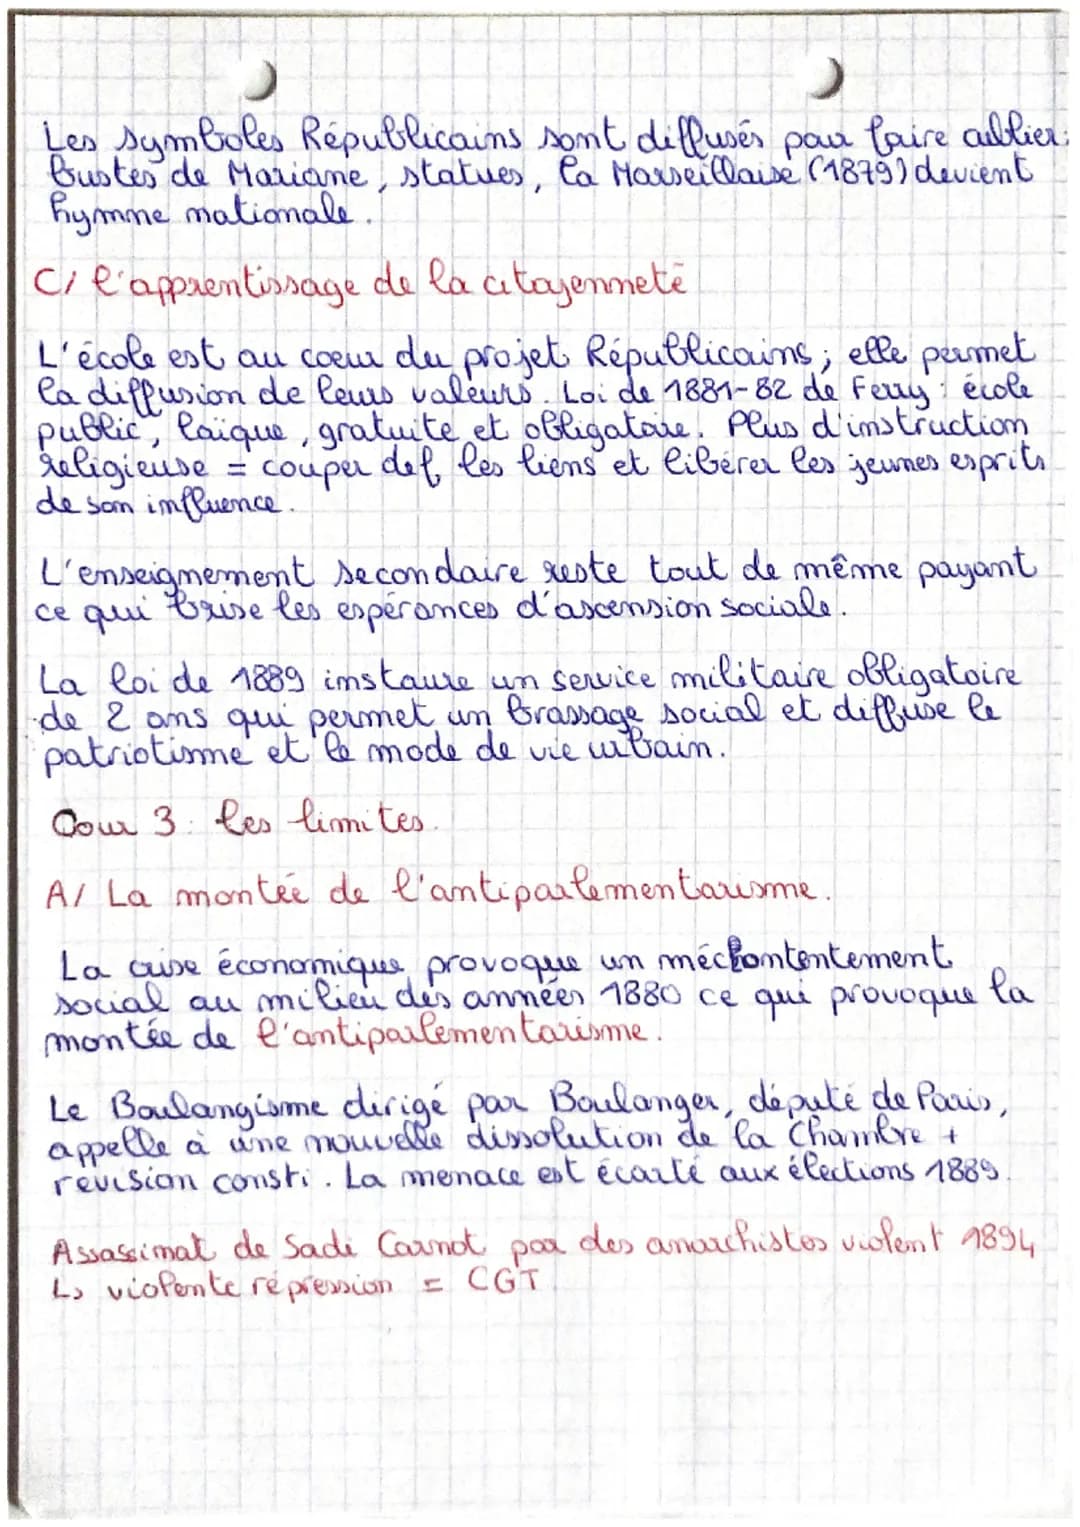 Les symboles Républicains sont diffusés pour faire oublier:
bustes de Mariane, statues, la Marseillaise (1879) devient
hymne nationale.
C/ l'apprentissage de la citoyenneté
L'école est au coeur du projet Républicains ; elle permet
la diffusion de leurs valeurs. Loi de 1881-82 de Ferry : école
public, laïque, gratuite et obligatoire. Plus d'instruction
religieuse = couper def les liens et libérer les jeunes esprits
de son influence.
L'enseignement secondaire reste tout de même payant
ce qui brise les espérances d'ascension sociale.
La loi de 1889 instaure un service militaire obligatoire
de 2 ans qui permet un brassage social et diffuse le
patriotisme et le mode de vie urbain.
Cour 3: les limites.
A/ La montée de l'antiparlementarisme.
La crise économique provoque un mécontentement
social au milieu des années 1880 ce qui provoque la
montée de l'antiparlementarisme.
Le Boulangisme dirigé par Boulanger, député de Paris,
appelle à une nouvelle dissolution de la Chambre +
revision consti. La menace est écarté aux élections 1889.
Assassinat de Sadi Carnot par des anarchistes violent 1894
↳ violente répression = CGT